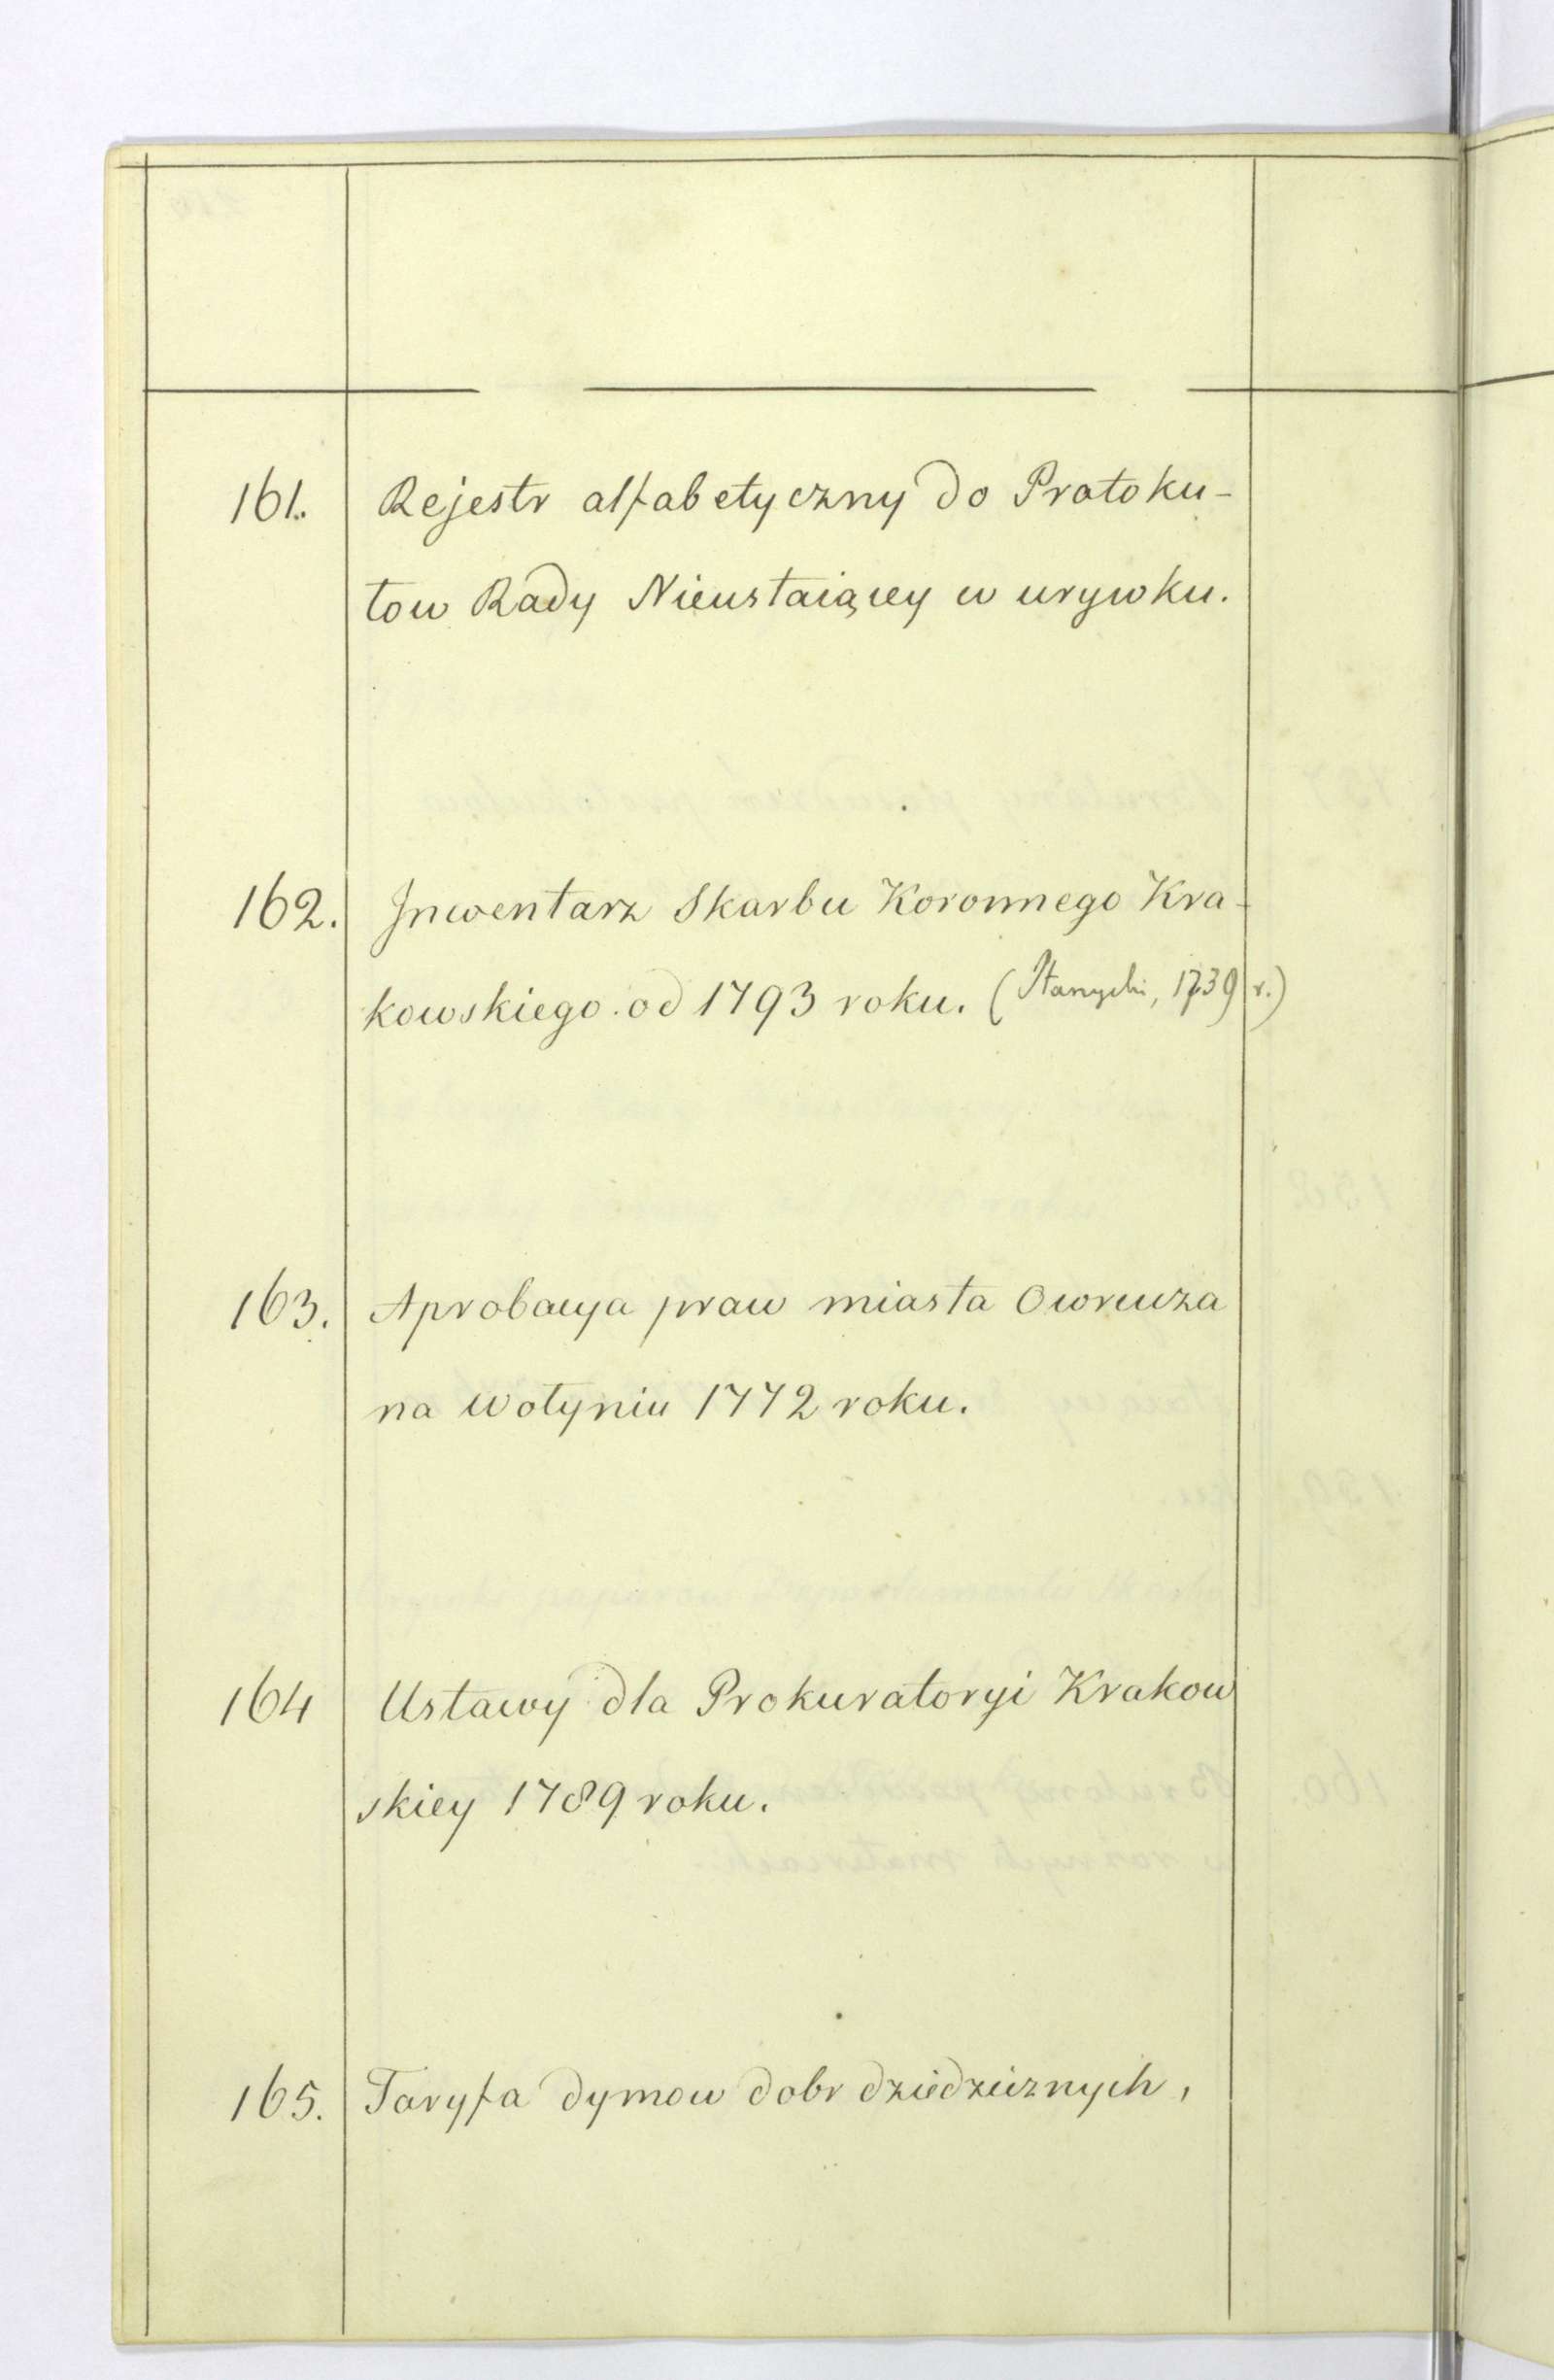 161. Rejestr alfabetyczny do Protoku-
łow Rady Nieustaiącey w urywku.
162. Inwentarz Skarbu Koronnego Kra-
kowskiego od 1793 roku. ( , 1739 r.)
163. Aprobacya praw miasta Owrucza
na Wołyniu 1772 roku.
164 Ustawy dla Prokuratoryi Krakow
skiey 1789 roku.
165. Taryfa dymow dobr dziedzicznych,